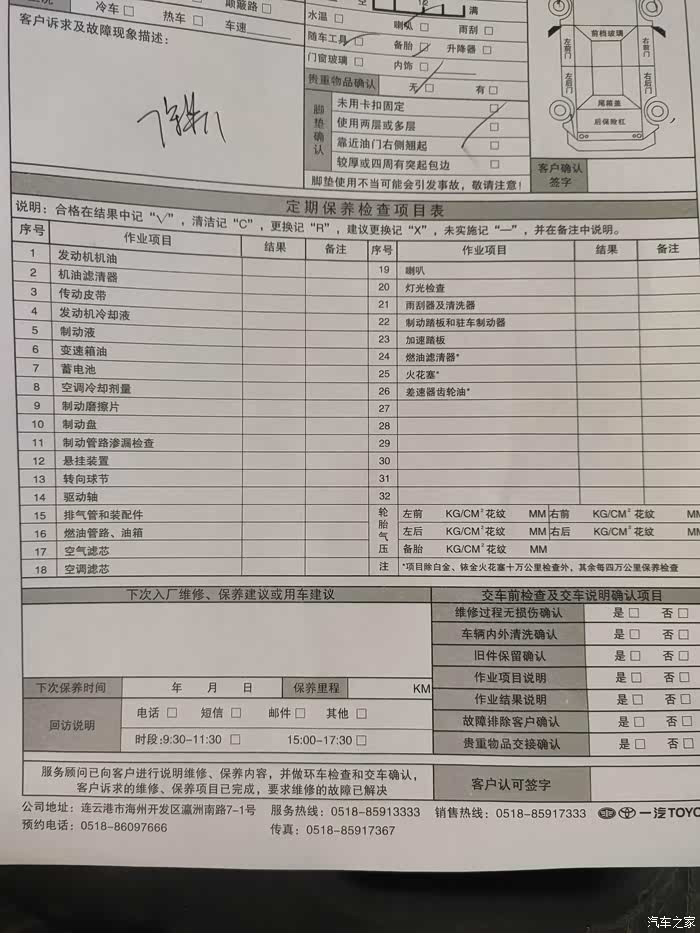 冷车 □ 热车 □ 车速 颠簸路 □
客户诉求及故障现象描述：
空 满
水温 □ 喇叭 □ 雨刮 □
随车工具 □ 备胎 □ 升降器 □
门窗玻璃 □ 内饰 □
贵重物品确认 无 □ 有 □
脚垫确认
未用卡扣固定 □
使用两层或多层 □
靠近油门右侧翘起 □
较厚或四周有突起包边 □
脚垫使用不当可能会引发事故，敬请注意！
前档玻璃
左前门
右前门
左后门
右后门
尾箱盖
后保险杠
客户确认
签字
定期保养检查项目表
说明：合格在结果中记“√”，清洁记“C”，更换记“R”，建议更换记“X”，未实施记“—”，并在备注中说明。
序号 作业项目 结果 备注 序号 作业项目 结果 备注
1 发动机机油 19 喇叭
2 机油滤清器 20 灯光检查
3 传动皮带 21 雨刮器及清洗器
4 发动机冷却液 22 制动踏板和驻车制动器
5 制动液 23 加速踏板
6 变速箱油 24 燃油滤清器*
7 蓄电池 25 火花塞*
8 空调冷却剂量 26 差速器齿轮油*
9 制动磨擦片 27
10 制动盘 28
11 制动管路渗漏检查 29
12 悬挂装置 30
13 转向球节 31
14 驱动轴 32
15 排气管和装配件 轮胎气压 左前 KG/CM² 花纹 MM 右前 KG/CM² 花纹 MM
16 燃油管路、油箱 左后 KG/CM² 花纹 MM 右后 KG/CM² 花纹 MM
17 空气滤芯 备胎 KG/CM² 花纹 MM
18 空调滤芯 注 *项目除白金、铱金火花塞十万公里检查外，其余每四万公里保养检查
下次入厂维修、保养建议或用车建议
交车前检查及交车说明确认项目
维修过程无损伤确认 是 □ 否 □
车辆内外清洗确认 是 □ 否 □
旧件保留确认 是 □ 否 □
作业项目说明 是 □ 否 □
作业结果说明 是 □ 否 □
故障排除客户确认 是 □ 否 □
贵重物品交接确认 是 □ 否 □
下次保养时间 年 月 日 保养里程 KM
回访说明
电话 □ 短信 □ 邮件 □ 其他 □
时段:9:30-11:30 □ 15:00-17:30 □
服务顾问已向客户进行说明维修、保养内容，并做环车检查和交车确认，
客户诉求的维修、保养项目已完成，要求维修的故障已解决
客户认可签字
公司地址：连云港市海州开发区瀛洲南路7-1号 服务热线：0518-85913333 销售热线：0518-85917333 一汽TOYO
预约电话：0518-86097666 传真：0518-85917367
汽车之家